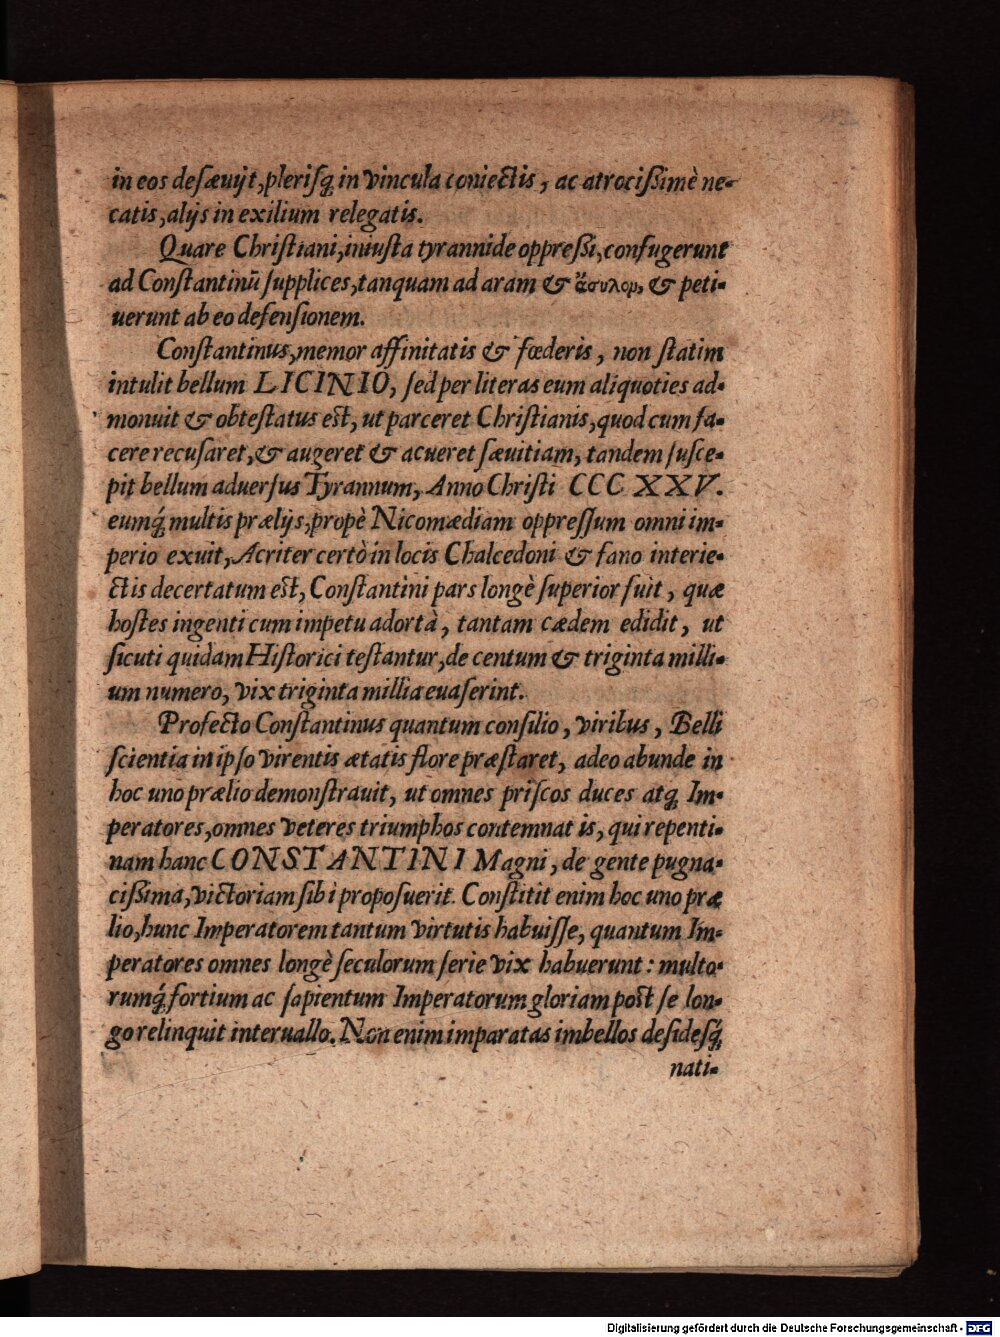 in eos desæuijt, plerisq́; in vincula coniectis, ac atrocißimè ne-
catis, alijs in exilium relegatis.
Quare Christiani, iniusta tyrannide oppreßi, confugerunt
ad Constantinū supplices, tanquam ad aram & ἄσυλομ, & peti-
uerunt ab eo defensionem.
Constantinus, memor affinitatis & fœderis, non statim
intulit bellum LICINIO, sed per literas eum aliquoties ad-
monuit & obtestatus est, ut parceret Christianis, quod cum fa-
cere recusaret, & augeret & acueret sæuitiam, tandem susce-
pit bellum aduersus Tyrannum, Anno Christi CCC XXV.
eumq́; multis prælijs, propè Nicomædiam oppressum omni im-
perio exuit, Acriter certò in locis Chalcedoni & fano interie-
ctis decertatum est, Constantini pars longè superior fuit, quæ
hostes ingenti cum impetu adorta, tantam cædem edidit, ut
sicuti quidam Historici testantur, de centum & triginta milli-
um numero, vix triginta millia euaserint.
Profecto Constantinus quantum consilio, viribus, Belli
scientia in ipso virentis ætatis flore præstaret, adeo abunde in
hoc uno prælio demonstrauit, ut omnes priscos duces atq; Im-
peratores, omnes veteres triumphos contemnat is, qui repenti-
nam hanc CONSTANTINI Magni, de gente pugna-
cißima, victoriam sibi proposuerit. Constitit enim hoc uno præ
lio, hunc Imperatorem tantum virtutis habuisse, quantum Im-
peratores omnes longè seculorum serie vix habuerunt: multo-
rumq́; fortium ac sapientum Imperatorum gloriam post se lon-
go relinquit interuallo. Non enim imparatas imbellos desidesq́;
nati-
Digitalisierung gefördert durch die Deutsche Forschungsgemeinschaft - DFG